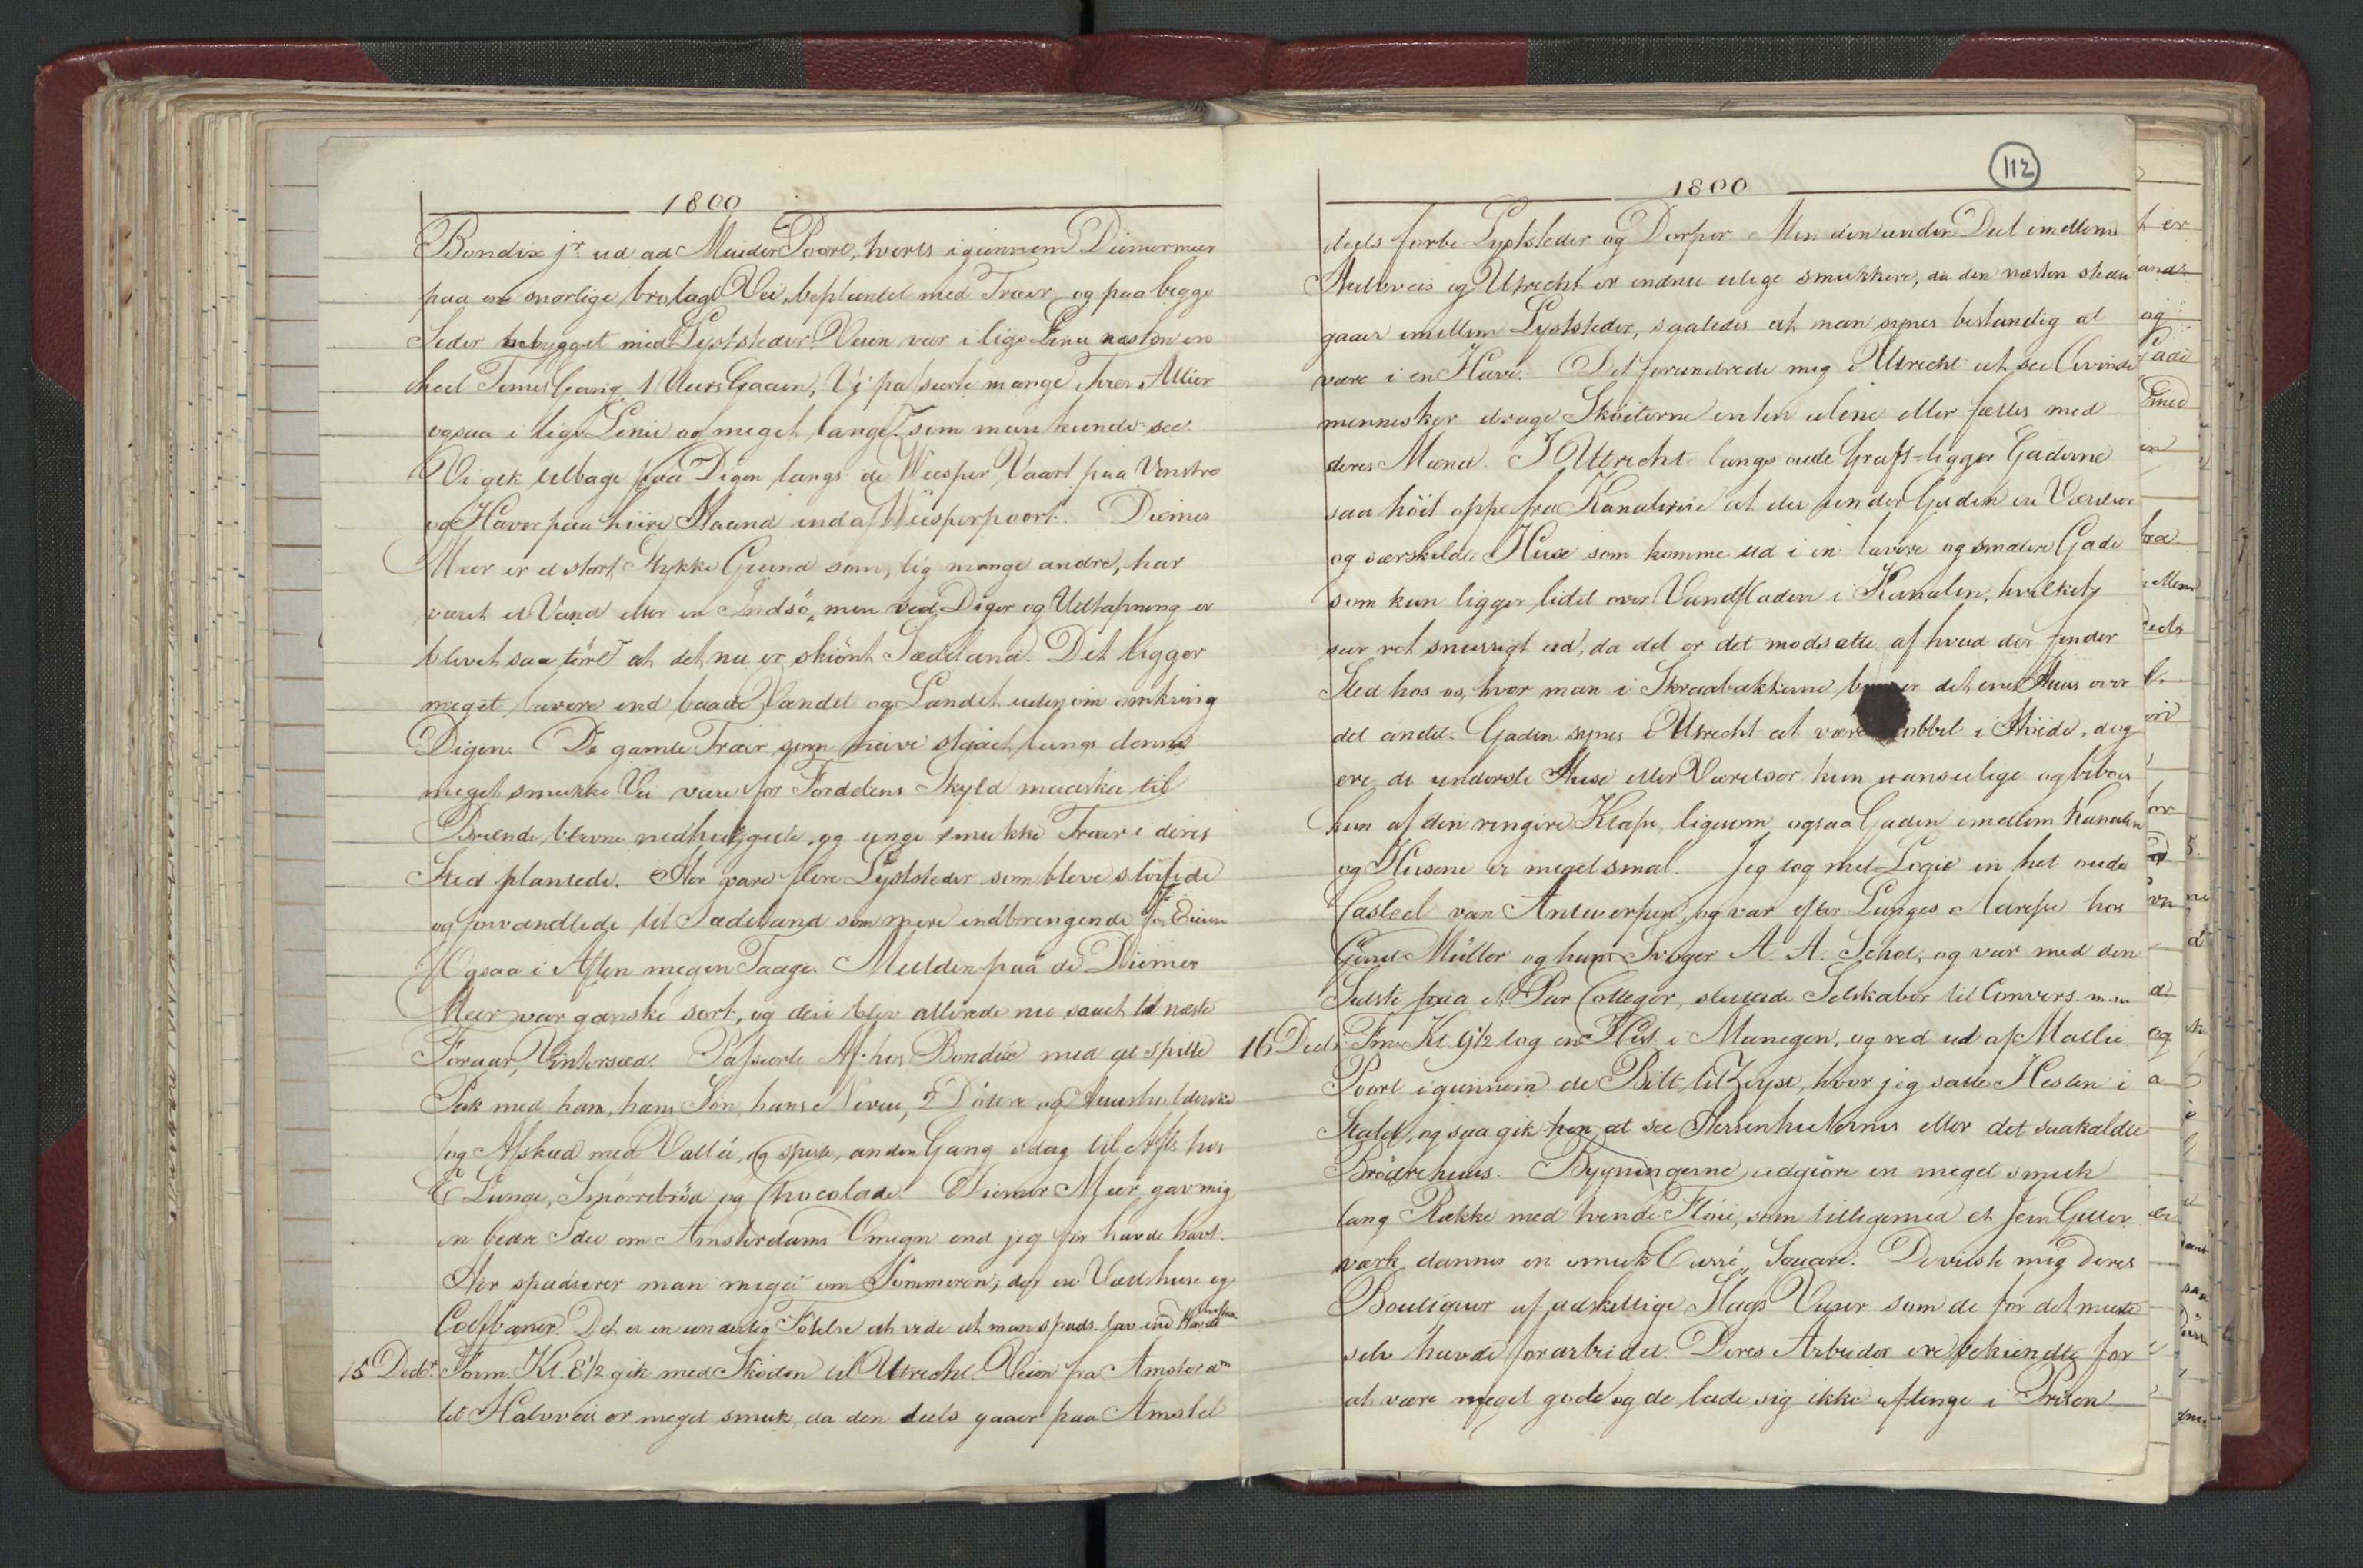 1800
Bondix jr. ud ad Muider Poort, tverts igiennem Diemermeer
paa en snorlige brolagt Vei, beplantet med Træer og paa begge
Sider bebygget med Lyststeder. Veien var i lige Linie næsten en
heel Times Gang, 1 Uurs Gaaen, Vi passerte mange tver Allier
ogsaa i lige Linie og meget lange, som man kunde see.
Vi gik tilbage paa Digen langs de Weesper Vaart paa Venstre
og Haver paa høire Haand ind af Weesperpoort. Diemer
Meer er et stort Stykke Grund som, lig mange andre, har
været et Vand eller en Indsö, men ved Diger og Udtapning er
blevet saa tørt at det nu er skiönt Sædeland. Det ligger
meget lavere end baade Vandet og Landet udenom omkring
Digen. De gamle Træer som have staaet langs denne
meget smukke Vei vare for Fordelens Skyld maaskee til
Brænde blevne nedhuggede, og unge smukke Træer i deres
Sted plantede. Her vare flere Lyststeder som bleve slöifede
og forvandlede til Sædeland som mere indbringende for Eieren
Ogsaa i Aften megen Taage. Mulden paa de Diemer
Meer var ganske sort, og deri blev allerede nu saaet til næste
Foraar, Vintersæd. Passerte Af. hos Bondix med at spille
med ham, hans Sön, hans Neveu, 2 Döttre og Huusholderske
tog Afsked med Vallé, og spiste, anden Gang idag til Aften hos
E Lunge, Smörrebröd og Chocolade. Diemer Meer gav mig
en bedre Idee om Amsterdams Omegn end jeg för havde havt.
Her spadserer man meget om Sommeren; der ere Vertshuse og
Colfbaner. Det er en underlig Fölelse at vide at man spads. lav. end Havets
15 Decbr. Form. Kl. 8 1/2 gik med Skøiten til Utrecht. Veien fra Amsterdm
til Halvveis er meget smuk, da den deels gaaer paa Amstel
1800
112
deels forbi Lyststeder og Dorper. Men den anden Deel imellem
Halvveis og Utrecht er endnu ulige smukkere, da den næsten stedse
gaaer imellem Lyststeder, saaledes at man synes bestandig at
være i en Have. Det forundrede mig i Utrecht at see Qvinde
mennesker drage Skøiterne enten alene eller fælles med
deres Mænd. I Utrecht langs oude Graft ligger Gaderne
saa höit oppe fra Kanalerne at der under Gaden ere Værelser
og særskilte Huse som komme ud i en lavere og smalere Gade
som kun ligger lidet over Vandfladen i Kanalen, hvilket
seer ret snurrigt ud, da det er det modsatte af hvad der finder
Sted hos os, hvor man i Skraabakkerne det ene Huus over
det andet. Gaden synes i Utrecht at være dobbel i Höide, dog
ere de underste Huse eller Værelser kun uanseelige og beboes
kun af den ringere Klasse, ligesom ogsaa Gaden imellem Kanalen
og Husene er meget smal. Jeg tog mit Logie in het oude
Casteel van Antwerpen, og var efter Lunges Adresse hos
Gerud Müller og hans Svoger A. A. Schot, og var med den
Sidste paa et Par Colleger, sluttede Selskaber til Convers. m.m.
16 Decbr. Fm. Kl. 9 1/2 tog en Hest i Manegen, og red ud af Mallie
Poort igiennem de Bilt til Zeyst, hvor jeg satte Hesten i
Stald, og saa gik hen at see Herrenhuternes eller det saakaldte
Brödrehuus. Bygningerne udgiöre en meget smuk
lang Række med tvende Flöie, som tilligemed et Jern Gitter
værk danner en smuk Carré, Square. De viiste mig deres
Boutiquer af adskillige Slags Varer som de for det meeste
selv havde forarbeidet. Deres Arbeider ere bekiendte for
at være meget gode og de lade sig ikke aftinge i Prisen